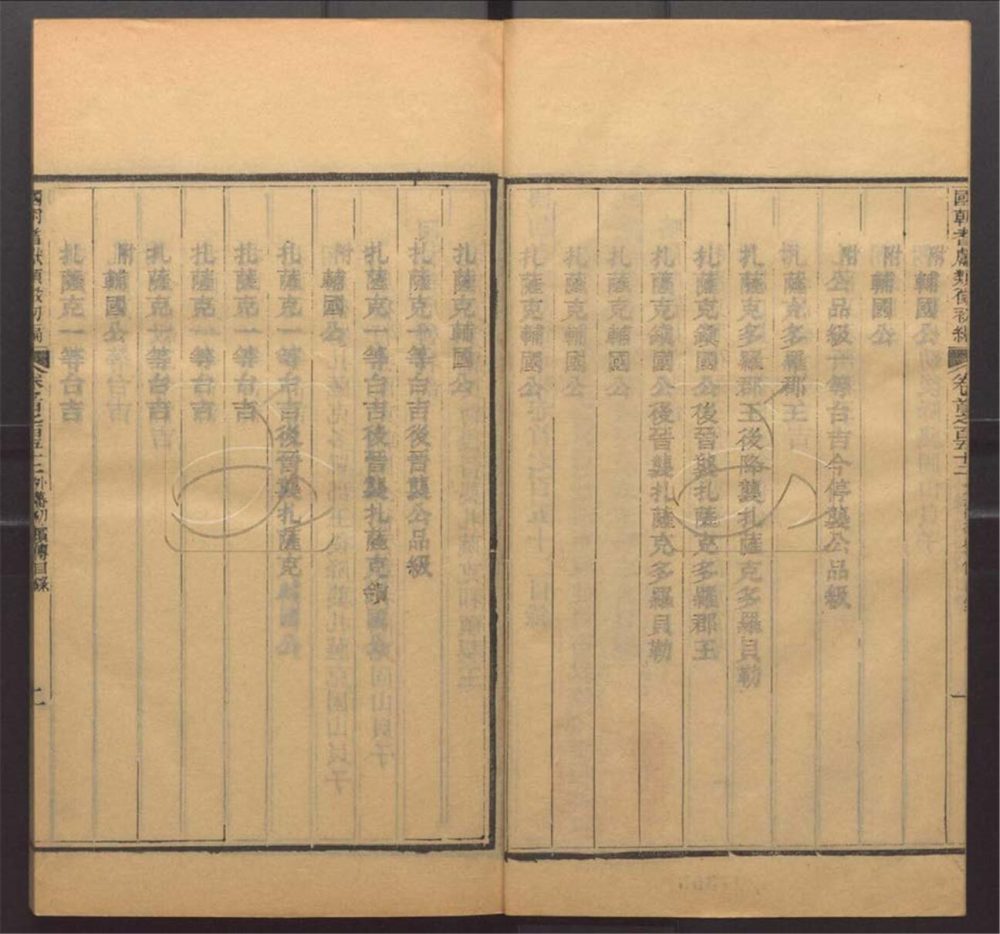 附輔國公
附輔國公
附公品級一等台吉今停襲公品級
扎薩克多羅郡王
扎薩克多羅郡王後降襲扎薩克多羅貝勒
扎薩克鎮國公後晉襲扎薩克多羅郡王
扎薩克鎮國公後晉襲扎薩克多羅貝勒
扎薩克輔國公
扎薩克輔國公
扎薩克輔國公
扎薩克輔國公
扎薩克一等台吉後晉襲公品級
扎薩克一等台吉後晉襲扎薩克鎮國公
附輔國公
扎薩克一等台吉後晉襲扎薩克輔國公
扎薩克一等台吉
扎薩克一等台吉
扎薩克一等台吉
附輔國公
扎薩克一等台吉